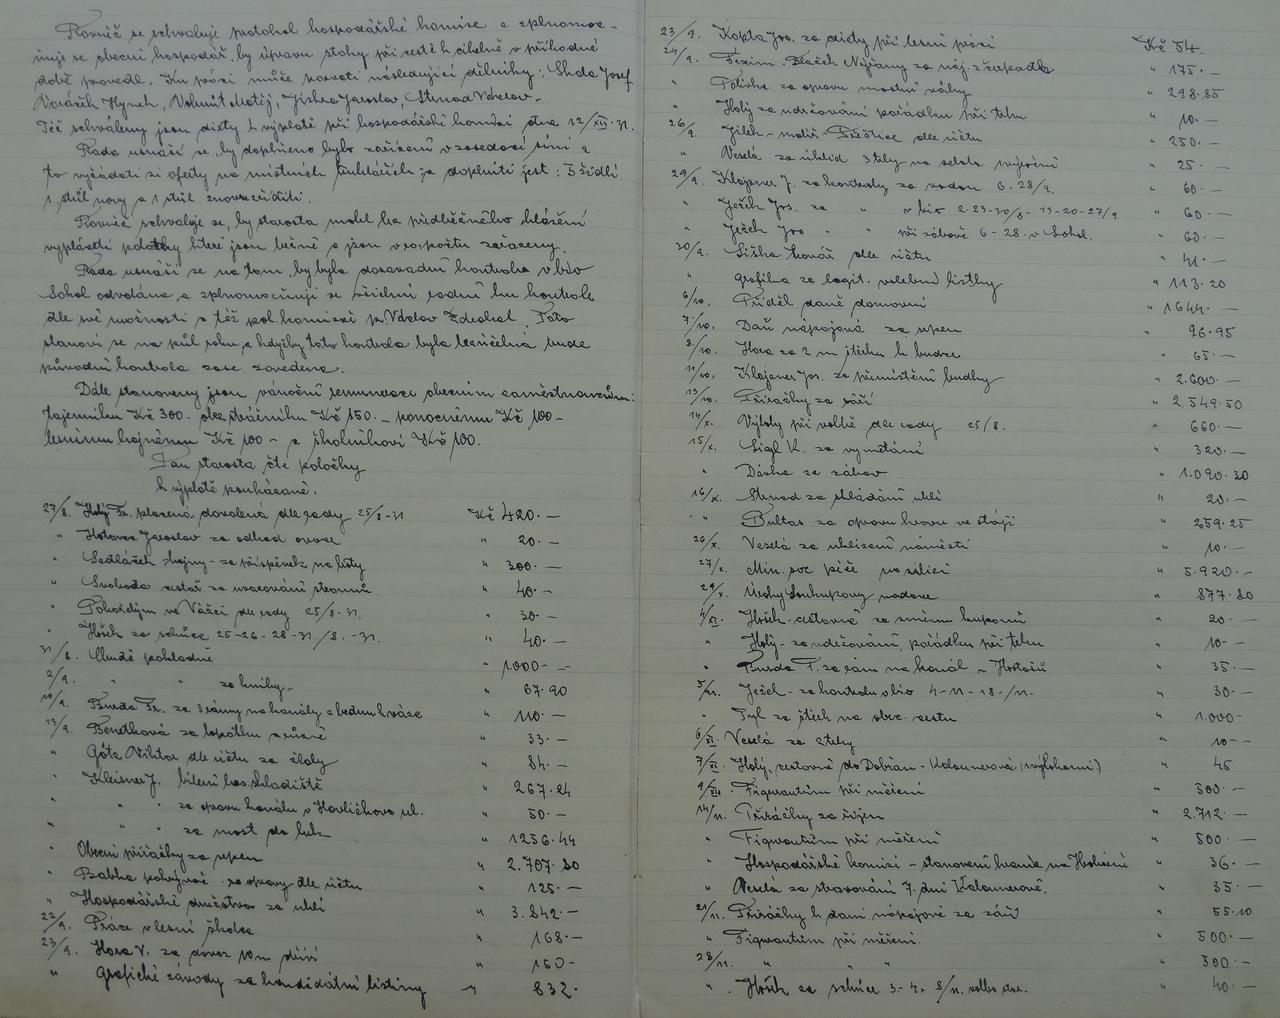 Rovněž se schvaluje protokol hospodářské komise a zplnomoc-
ňuje se obecní hospodář, by úpravu stohy při cestě k cihelně v příhodné
době provedl. Ku práci může pozvati následující dělníky: Skda Josef
Voráček Hynek, Volmut Matěj, Jiskra Jaroslav, Václav.
Též schváleny jsou diety k výplatě při hospodářské komisi dne 12/XII. 31.
Rada usnáší se, by doplněno bylo zařízení v zasedací síni a
to vyžádati si oferty na místních truhlářích; a doplniti jest: 5 židlí
1 stůl nový a 1 stůl znovuzříditi.
Rovněž schvaluje se, by starosta mohl ba předběžného hlášení
vypláceti položky které jsou běžné a jsou v rozpočtu zařazeny.
Rada usnáší se na tom, by byla dosavadní kontrola v bio
Sokol odvolána, a zplnomocňují se všichni radní ku kontrole
dle své možnosti a též pol. komisař p. Václav Zdeohal. Toto
stanoví se na půl roku, a kdyžby tato kontrola byla bezúčelná bude
původní kontrola zase zavedena.
Dále stanoveny jsou vánoční remunerace obecním zaměstnancům:
tajemníku Kč 300.- obec. strážníku Kč 150.- ponocnému Kč 100-
lesnímu hajnému Kč 100 - a školníkovi Kč 100.
Pan starosta čte položky
k výplatě poukázané.
27/8. Holý Fr. placená dovolená dle rady 25/8-31 Kč 420.—
" Jaroslav za odhad ovoce " 20.—
" Sedláček hajný - za příspěvek na boty " 300.—
" Svoboda cestář za uvazování stromů " 40.—
" Pohořelým ve Vážci dle rady 25/8-31. " 30.—
" Hošek za schůze 25-26-28-31./8.-31. " 40.—
31/8. Chudé pokladně " 1.000-—
2/9. " " za knihy- " 67.90
10/9. Burda Fr. za 3 rámy na kanály a bednu k váze " 110.—
13/9. Benetková za lopatku a různé " 33.—
" Götz Viktor dle účtu za " 84.—
" Kleisner J. bílení hos. skladiště " 267.24
" " " za opravu kanálu v Havlíčkova ul. " 50.—
" " " za most do luk " 1256.44
" Obecní přirážky za srpen " 2.707.80
" Babka pokrývač za opravy dle účtu " 125.—
" Hospodářské družstvo za uhlí " 3.842.—
22/9. Práce v lesní školce " 168.—
23/9. Hora V. za dovoz 10m dříví " 150-
" Grafické závody za kandidátní listiny " 832.
23/9. Kopta Jos. za diety při lesní práci Kč 54.
24/9. Blažek Nýřany za náj. z čerpadla " 175.—
" Polívka za opravu mostní váhy " 298.85
" Holý za udržování pořádku při trhu " 10.—
26/9. Jílek - malíř Přeštice dle účtu " 250.—
" Veselá za úklid 3 trhy na " 25.—
29/9. Klajsner J. za kontroly za vodou 6-28/9. " 60.—
" Ježek Jos. za " v bio 2-23-30/8-13-20-27/9 " 60.—
" Ježek Jos " " při zábavě 6-28. v Sokol. " 60.—
30/9. Šiška kovář dle účtu " 41.—
" Grafika za legit. volební lístky " 113.20
6/10. Příděl daně domovní " 1644.—
7/10. Daň nápojová za srpen " 96.95
8/10. Hora za 2 m štěrku k budce " 65.—
11/10. Klajsner Jos. za přemístění budky " 2.600.—
13/10. Přirážky za září " 2.549.50
14/X. Výlohy při volbě dle rady 25/8. " 660.—
15/X. Sigl K. za vymetání " 320.—
" Dávka ze zábav " 1.090.30
16/X. za skládání uhlí " 20.—
" Bultas za opravu kravu ve stáji " 259.25
26/X. Veselá za uklizení náměstí " 10.—
27/X. Min. soc. péče na silnici " 5.920.—
29/X. Úroky Soukupovy nadace " 877.80
4/XI. Hošek - cestovné za směnu kuponů " 20.—
" Holý - za udržování pořádku při trhu " 10-—
" Burda F. za rám na kanál u Hostašů " 35.—
5/11. Ježek - za kontrolu v bio 4-11-18-/11. " 30.—
" Tyl za štěrk na obec. cestu " 1.000-
6/XI. Veselá za 2 trhy " 10-—
7/XI. Holý, cestovné do Dobřan - Kalounerová (výlohami) " 45
9/XI. Figurantům při měření " 300.—
14/11. Přirážky za říjen " 2.712.—
" Figurantům při měření " 500.—
" Hospodářské komisi - stanovení hranic na " 36.—
" Veselá za stravování 7. dní Kalounerové. " 35.—
21/11. Přirážky k dani nápojové za září " 55.10
" Figurantům při měření. " 500.—
28/11. " " " " 300.—
" Hošek za schůze 3-4- 8/11. volba star. " 40.—